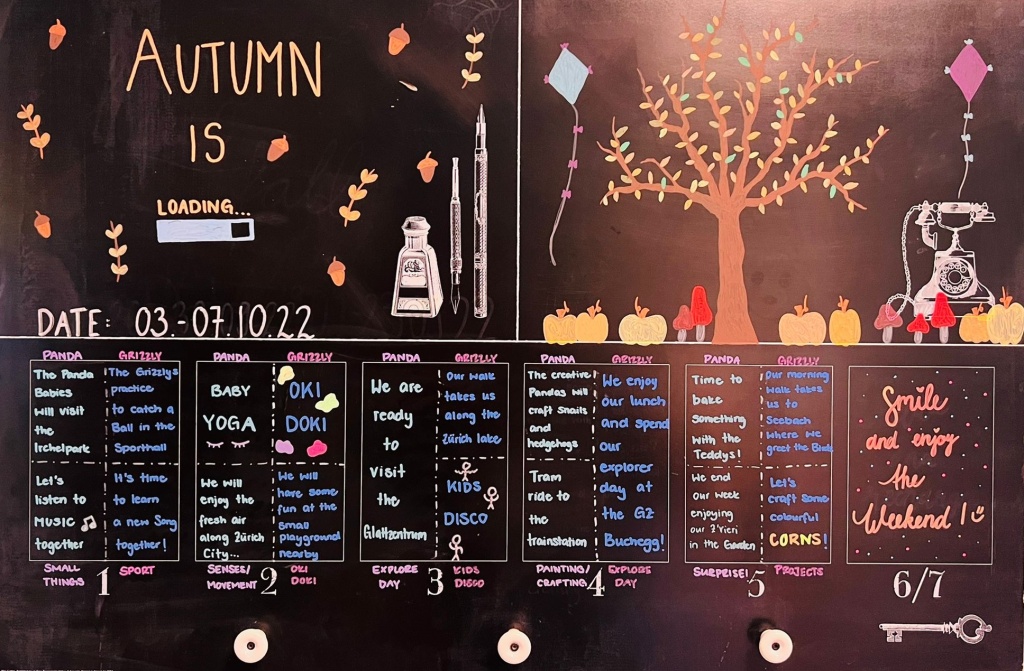 AUTUMN
IS
LOADING...
DATE: 03.-07.10.22
PANDA
GRIZZLY
The Panda
Babies
will visit
the
Irchelpark
The Grizzlys
practice
to catch a
Ball in the
Sporthall
Let's
listen to
MUSIC
together
It's time
to learn
a new Song
together!
SMALL
THINGS
SPORT
1
PANDA
GRIZZLY
BABY
YOGA
OKI
DOKI
We will
enjoy the
fresh air
along Zürich
City...
We will
have some
fun at the
small
playground
nearby
SENSES/
MOVEMENT
OKI
DOKI
2
PANDA
GRIZZLY
We are
ready
to
visit
the
Glattzentrum
Our walk
takes us
along the
Zürich lake
KIDS
DISCO
EXPLORE
DAY
KIDS
DISCO
3
PANDA
GRIZZLY
The creative
Pandas will
craft Snails
and
hedgehogs
Tram
ride to
the
trainstation
We enjoy
our lunch
and spend
our
explorer
day at
the GZ
Buchegg!
PAINTING/
CRAFTING
EXPLORE
DAY
4
PANDA
GRIZZLY
Time to
bake
something
with the
Teddys!
Our morning
walk takes
us to
Seebach
where we
greet the Birds
We end
our week
enjoying
our Z'Vieri
in the Garden
Let's
craft some
colourful
CORNS!
SURPRISE!
PROJECTS
5
Smile
and enjoy
the
Weekend!
6/7